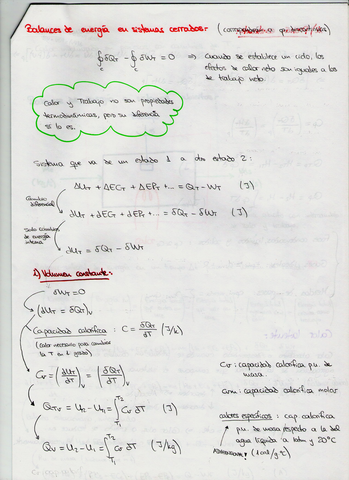 Balances de energía en sistemas cerrados:
∮c δQT - ∮c δWT = 0 ⇒ Cuando se establece un ciclo, los
efectos de calor neto son iguales a los
de trabajo neto.
Calor y Trabajo no son propiedades
termodinámicas, pero su diferencia
sí lo es.
Sistema que va de un estado 1 a otro estado 2:
ΔUT + ΔECT + ΔEPT + ... = QT - WT (J)
Cambio
diferencial
dUT + dECT + dEPT + ... = δQT - δWT (J)
Solo cambios
de energía
interna
dUT = δQT - δWT
1) Volumen constante:
δWT = 0
(dUT = δQT)v
Capacidad calorífica: C = δQT/dT (J/K)
(calor necesario para cambiar
la T en 1 grado)
Cv = (dUT/dT)v = (δQT/dT)v
QTv = U2 - U1 = ∫T1T2 Cv dT (J)
Qv = U2 - U1 = ∫T1T2 Cv dT (J/kg)
Cv: capacidad calorífica p.u. de
masa
Cvm: capacidad calorífica molar
calores específicos: cap calorífica
p.u. de masa respecto a la del
agua líquida a 1atm y 20°C
(1 cal/g °C)